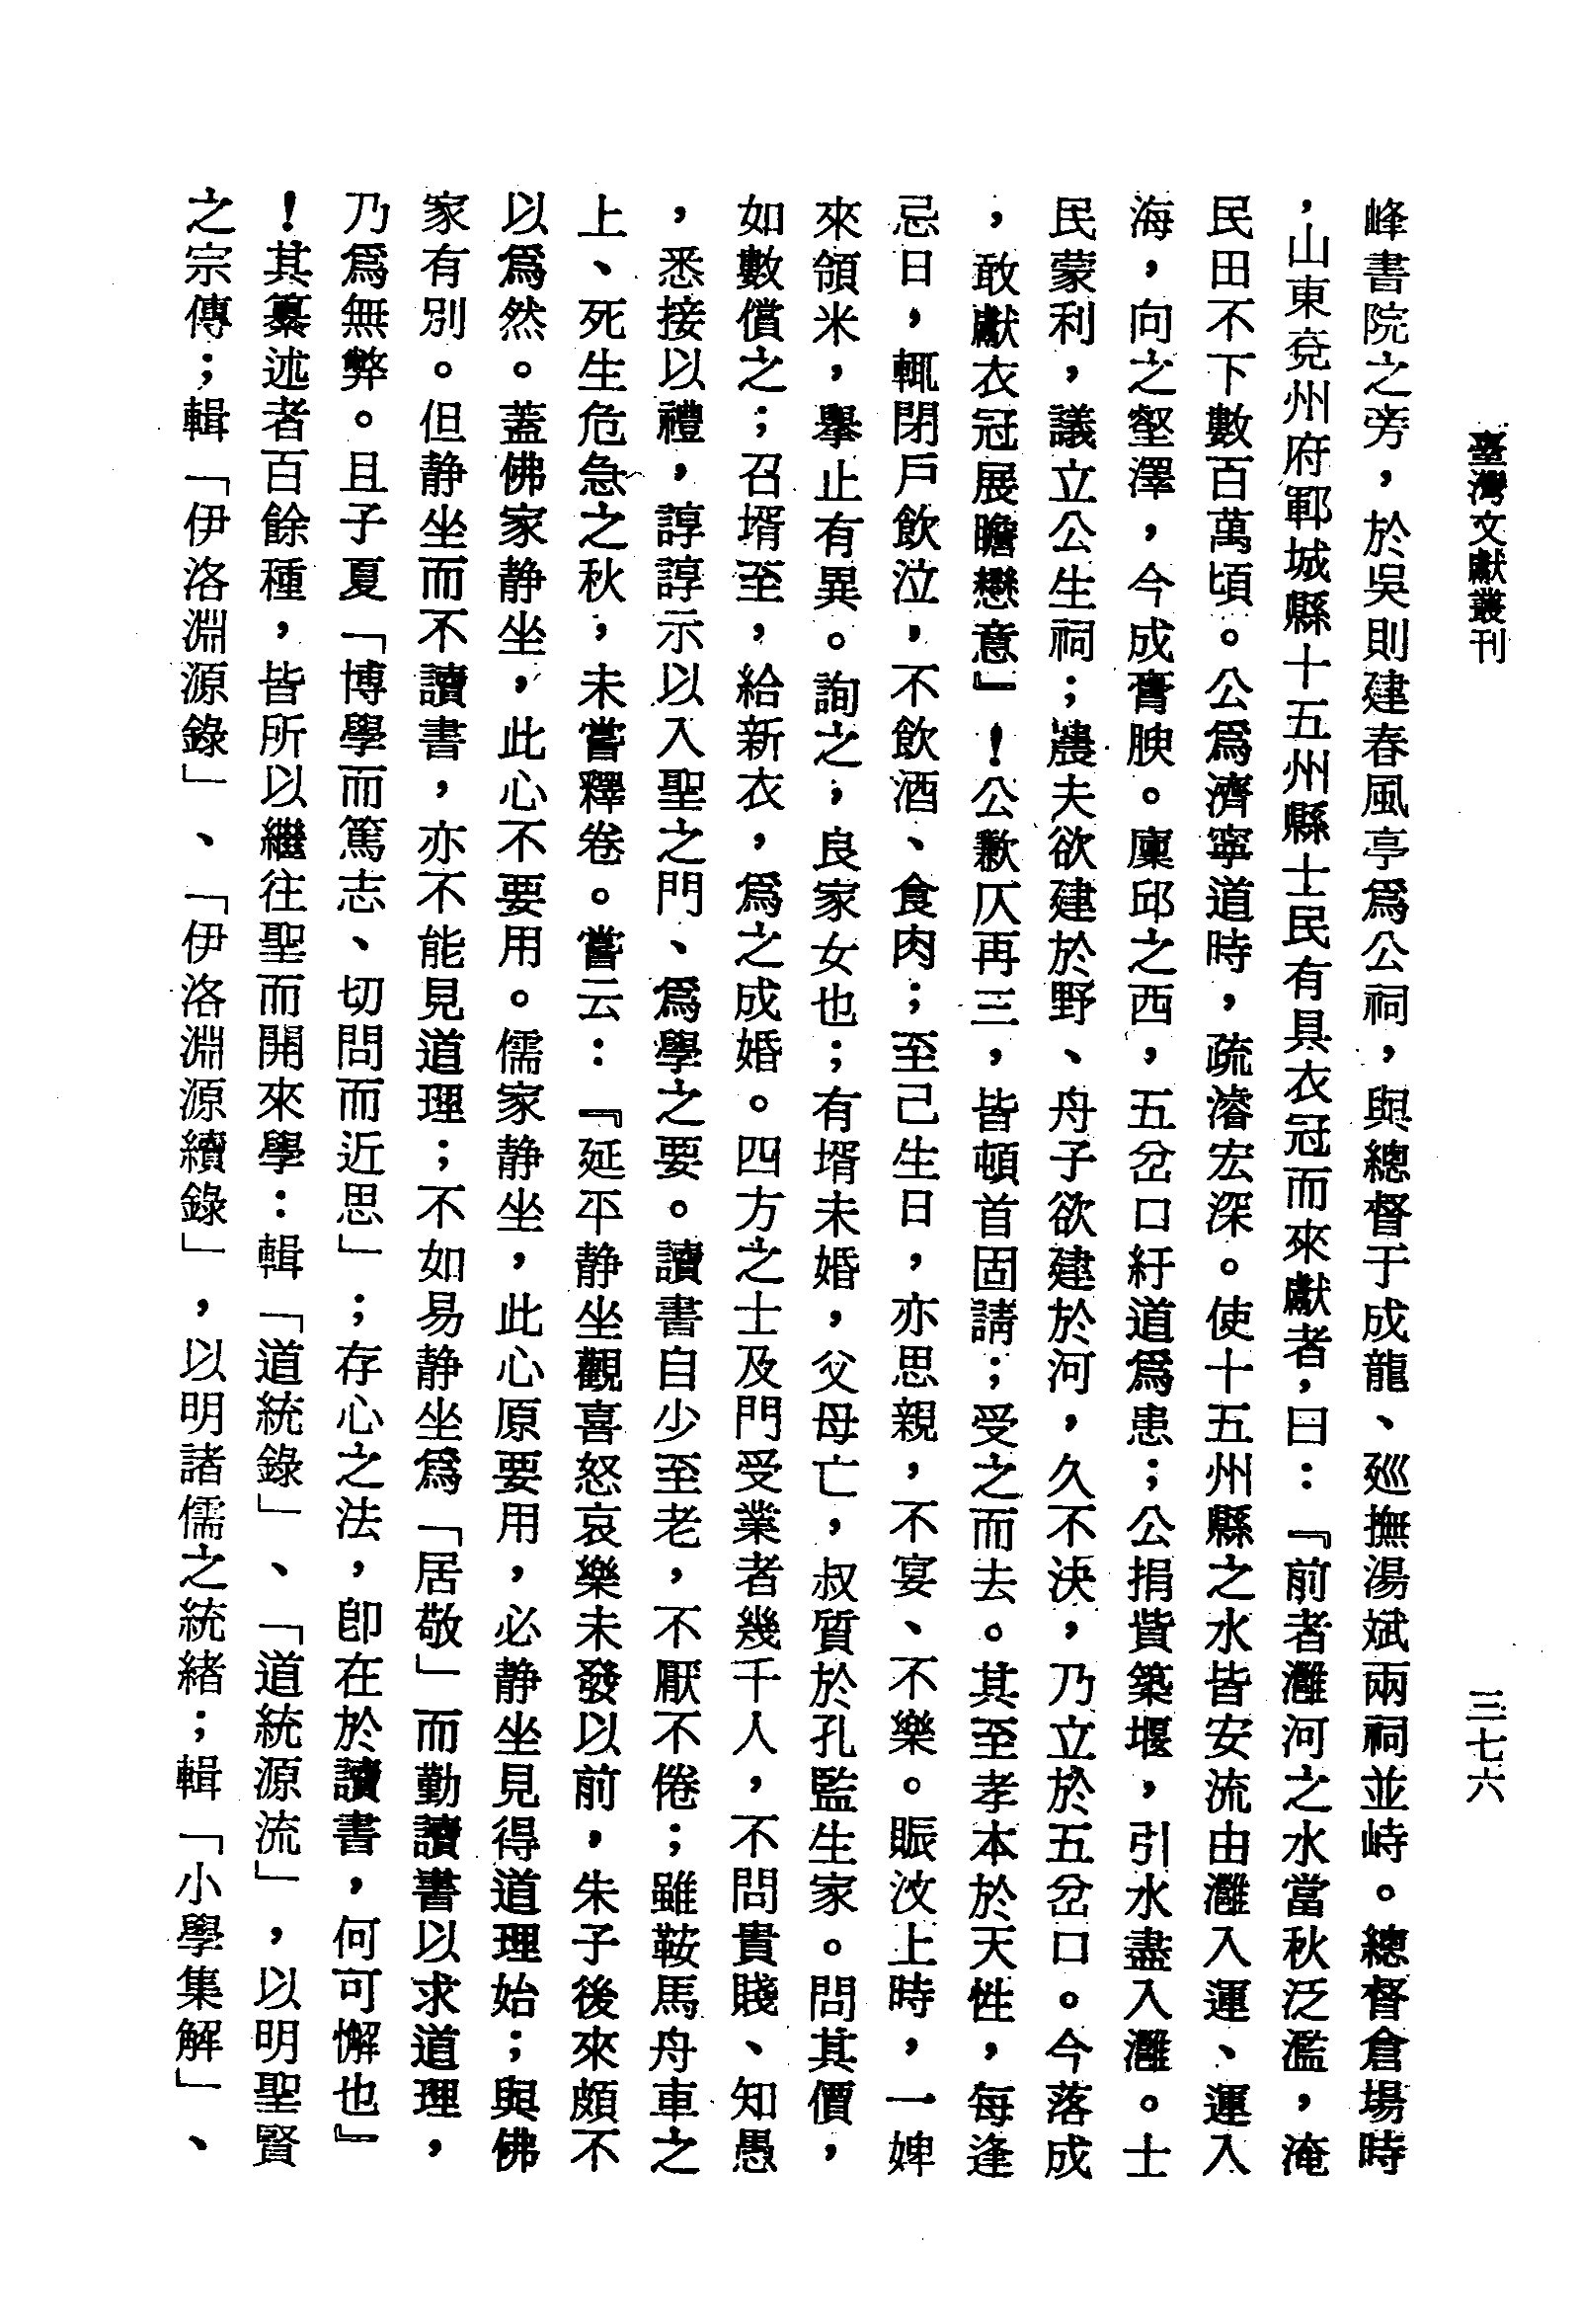 臺灣文獻叢刊
三七六
峰書院之旁，於吳則建春風亭爲公祠，與總督于成龍、廵撫湯斌兩祠並峙。總督倉場時
，山東兗州府鄆城縣十五州縣士民有具衣冠而來獻者，曰：『前者灉河之水當秋泛濫，淹
民田不下數百萬頃。公爲濟寧道時，疏濬宏深。使十五州縣之水皆安流由灉入運、運入
海，向之壑澤，今成膏腴。廩邱之西，五岔口紆道爲患；公捐貲築堰，引水盡入灉。士
民蒙利，議立公生祠；農夫欲建於野、舟子欲建於河，久不決，乃立於五岔口。今落成
，敢獻衣冠展瞻戀意』！公歉仄再三，皆頓首固請；受之而去。其至孝本於天性，每逢
忌日，輒閉戶飲泣，不飲酒、食肉；至己生日，亦思親，不宴、不樂。賑汶上時，一婢
來領米，舉止有異。詢之，良家女也；有壻未婚，父母亡，叔質於孔監生家。問其價，
如數償之；召壻至，給新衣，爲之成婚。四方之士及門受業者幾千人，不問貴賤、知愚
，悉接以禮，諄諄示以入聖之門、爲學之要。讀書自少至老，不厭不倦；雖鞍馬舟車之
上、死生危急之秋，未嘗釋卷。嘗云：『延平静坐觀喜怒哀樂未發以前，朱子後來頗不
以爲然。蓋佛家静坐，此心不要用。儒家静坐，此心原要用，必静坐見得道理始；與佛
家有別。但静坐而不讀書，亦不能見道理；不如易静坐爲「居敬」而勤讀書以求道理，
乃爲無弊。且子夏「博學而篤志、切問而近思」；存心之法，卽在於讀書，何可懈也』
！其纂述者百餘種，皆所以繼往聖而開來學：輯「道統錄」、「道統源流」，以明聖賢
之宗傳；輯「伊洛淵源錄」、「伊洛淵源續錄」，以明諸儒之統緒；輯「小學集解」、